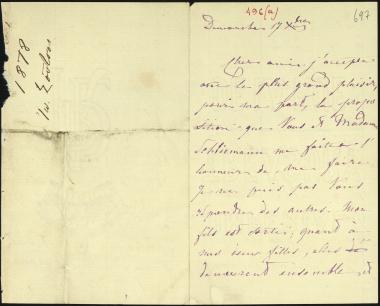 496(a)
697
Dimanche 17 Xbre
Cher ami, j'accepte
avec le plus grand plaisir,
pour ma part, la propo
sition que Vous & Madame
Schliemann me faites l'
honneur de me faire
Je ne puis pas Vous
répondre des autres. Mon
fils est sorti; quant à
mes deux filles, elles
demeurent ensemble, et
1878